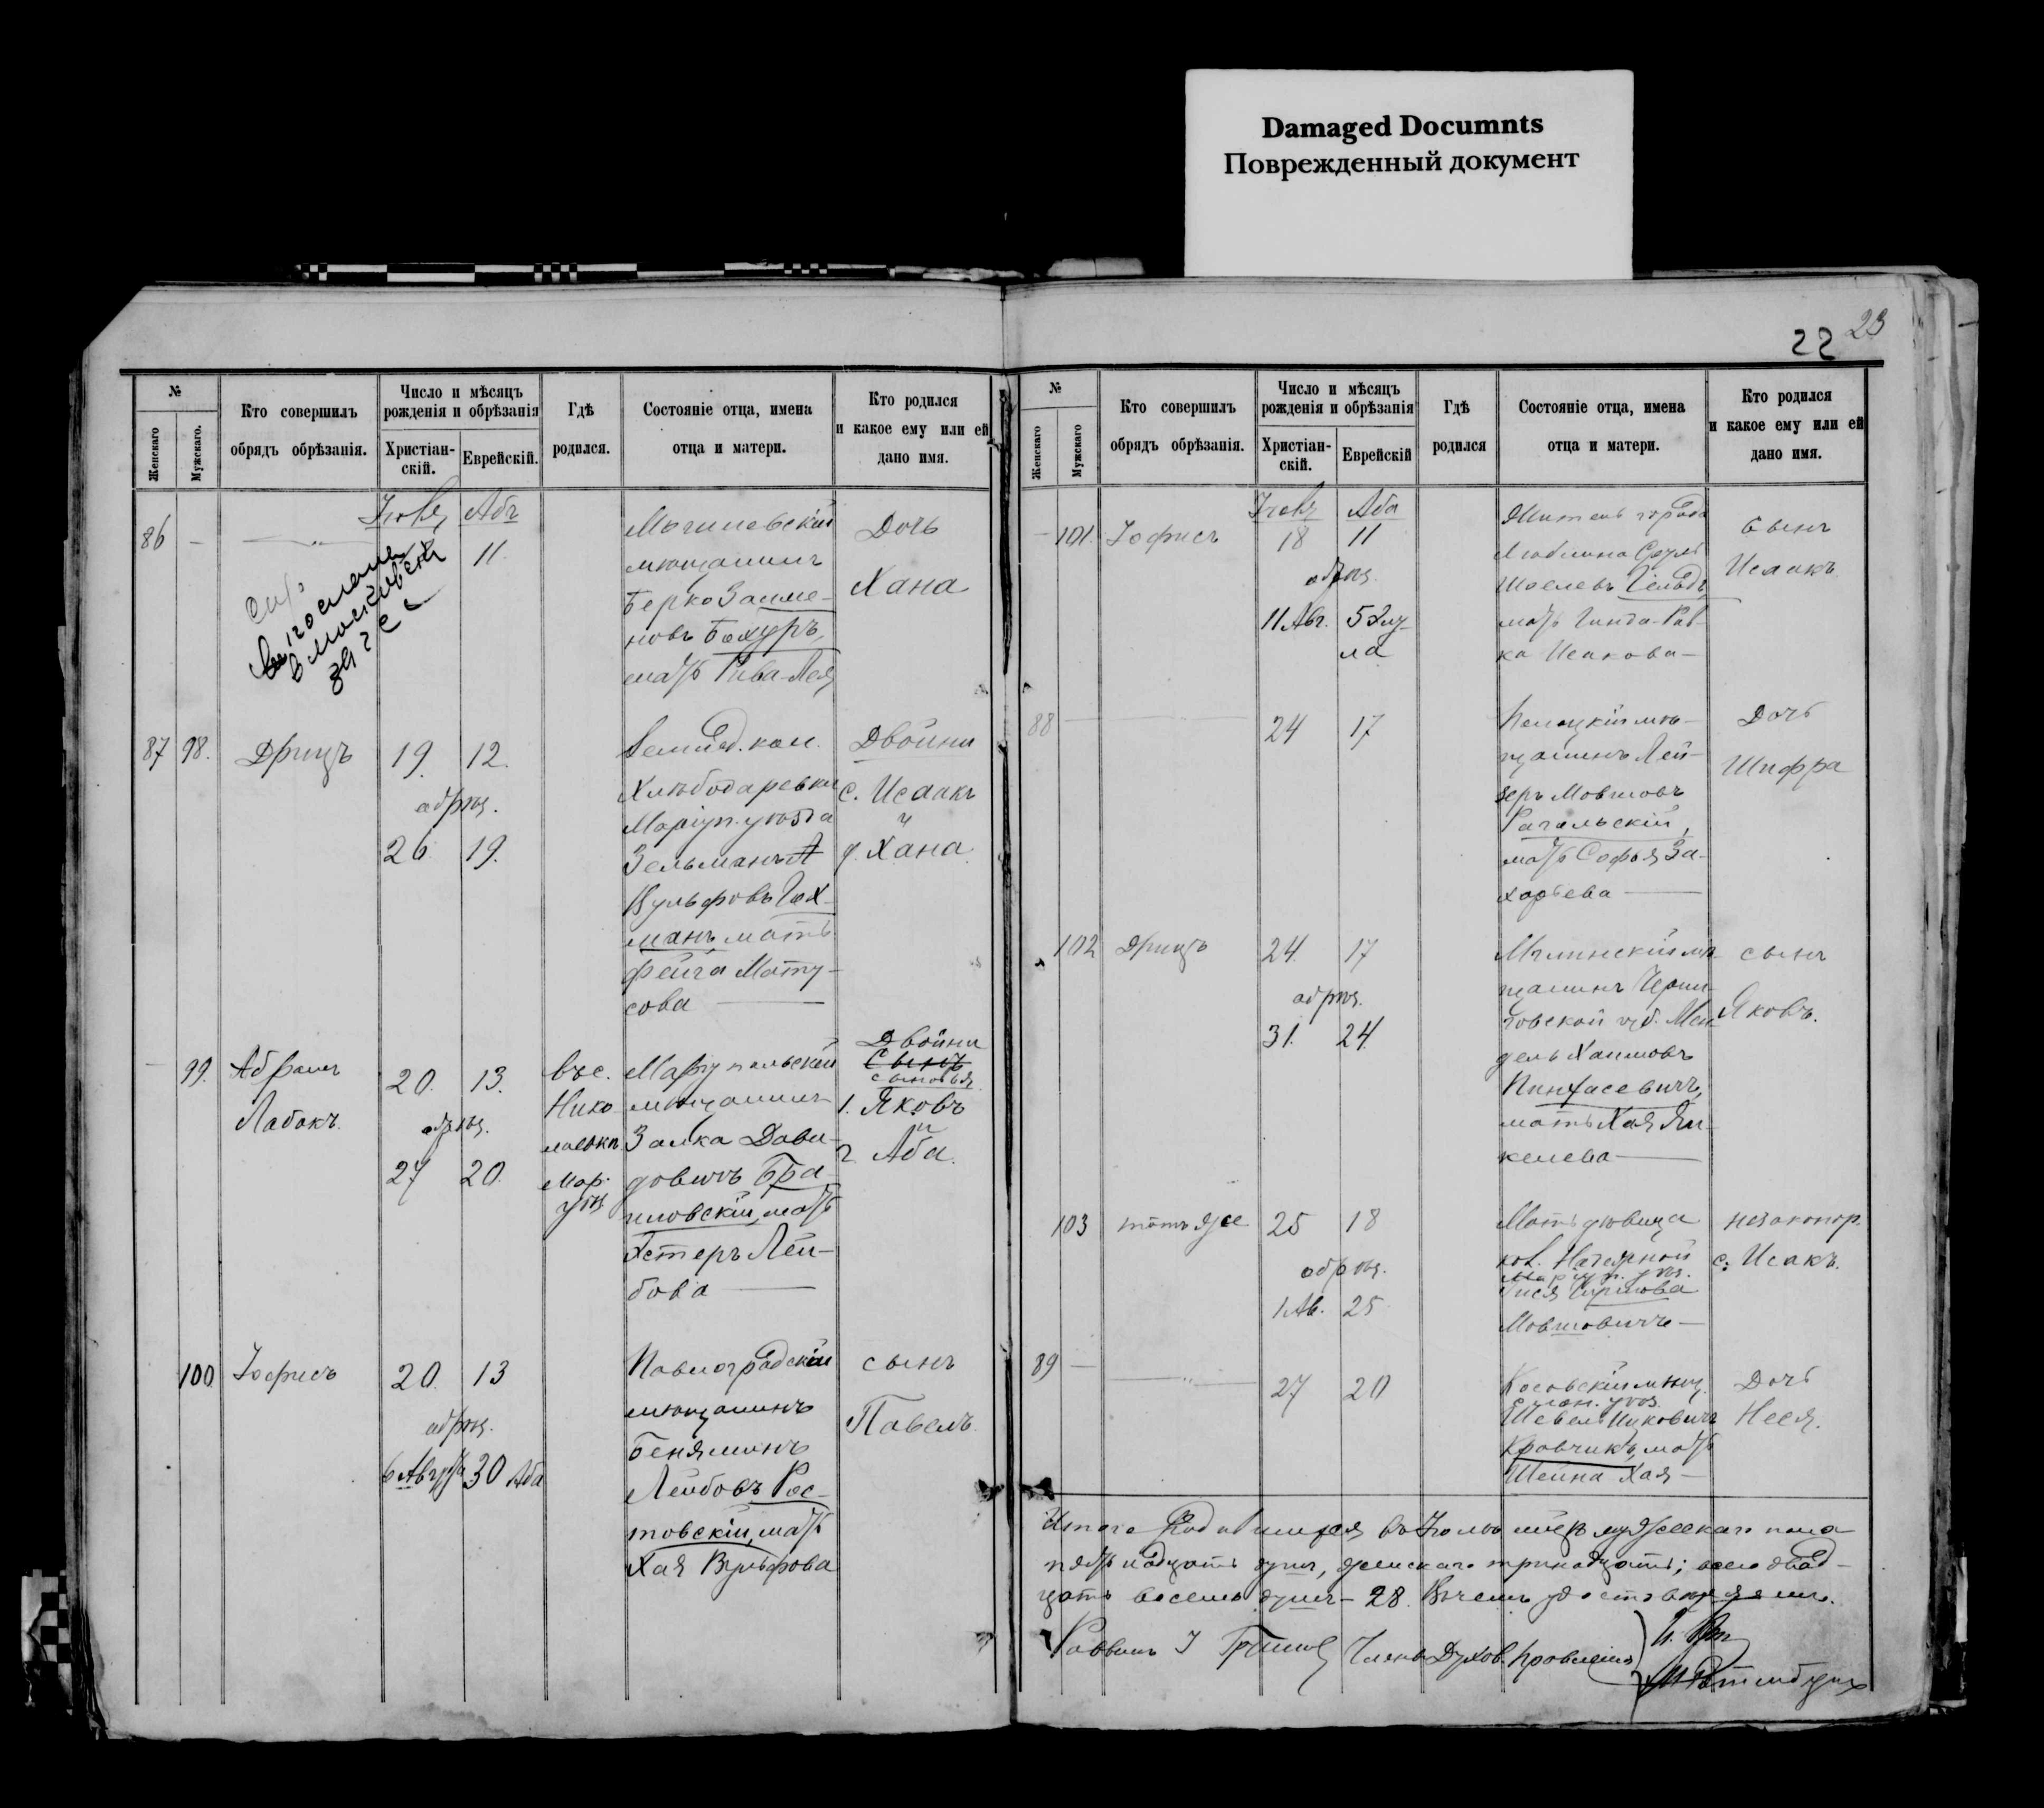 Damaged Documnts
Поврежденный документ
22 23
№
Женскаго
Мужскаго.
Кто совершилъ
обрядъ обрѣзанія.
Число и мѣсяцъ
рожденія и обрѣзанія
Христіан-
скій.
Еврейскій.
Гдѣ
родился.
Состояніе отца, имена
отца и матери.
Кто родился
и какое ему или ей
дано имя.
86 —
Аба
11.
Могилевскій
мѣщанинъ
Берко Залме-
новъ Бохуръ,
мать Рива-Лея
Дочь
Хана
87 98. Дрицъ
19. 12.
обрѣз.
26 19.
кол.
Хлѣбодаревки
Маріуп. уѣзда
Зельманъ
Вульфовъ Гох-
манъ, мать
Фейга Мату-
сова
Двойни
с. Исаакъ
и
д. Хана
99. Абрамъ
Лабокъ.
20. 13.
обрѣз.
27 20.
въ с.
Нико-
Мар.
Маріупольскій
мѣщанинъ
Залка Дави-
довичъ Бра-
иловскій, мать
Эстеръ Лей-
бова
Двойни
Сынъ
сыновья
1. Яковъ
и
2 Аба.
100 Іофисъ
20. 13
обрѣз.
6 Августа 30 Аба
Павлоградскій
мѣщанинъ
Беняминъ
Лейбовъ Рос-
товскій, мать
Хая Вульфова
сынъ
Павелъ
№
Женскаго
Мужскаго
Кто совершилъ
обрядъ обрѣзанія.
Число и мѣсяцъ
рожденія и обрѣзанія
Христіан-
скій.
Еврейскій
Гдѣ
родился
Состояніе отца, имена
отца и матери.
Кто родился
и какое ему или ей
дано имя.
— 101. Іофисъ
Аба
18 11
обрѣз.
11 Авг. 5 Элу-
ла
Житель города
Люблина Сруль
мать Гинда-Рив-
ка Исакова —
Сынъ
Исаакъ
88
24 17
мѣ-
щанинъ Лей-
зеръ Мовшовъ
мать Софья За-
харьева
Дочь
Шифра
102 Дрицъ
24. 17
обрѣз.
31. 24.
Мглинскій мѣ-
щанинъ Черни-
говской губ. Мен-
дель Хаимовъ
Пинхасевичъ,
мать Хая Ян-
келева
сынъ
Яковъ.
103 тотъ же
25 18
обрѣз.
1 Ав. 25
Мать дѣвица
кол. Нагарной
Маріуп. уѣз.
Мовшовичъ —
незаконор.
с. Исакъ.
89 —
27 20
мѣщ.
Кравчикъ, мать
Шейна Хая —
Дочь
Песя.
Итого Родившихся въ Іюлѣ мѣсяцѣ мужескаго пола
пятнадцать душъ, женскаго тринадцать; всего двад-
цать восемь душъ — 28. Въ чемъ удостовѣряемъ.
Раввинъ
Члены Духов. Правленія